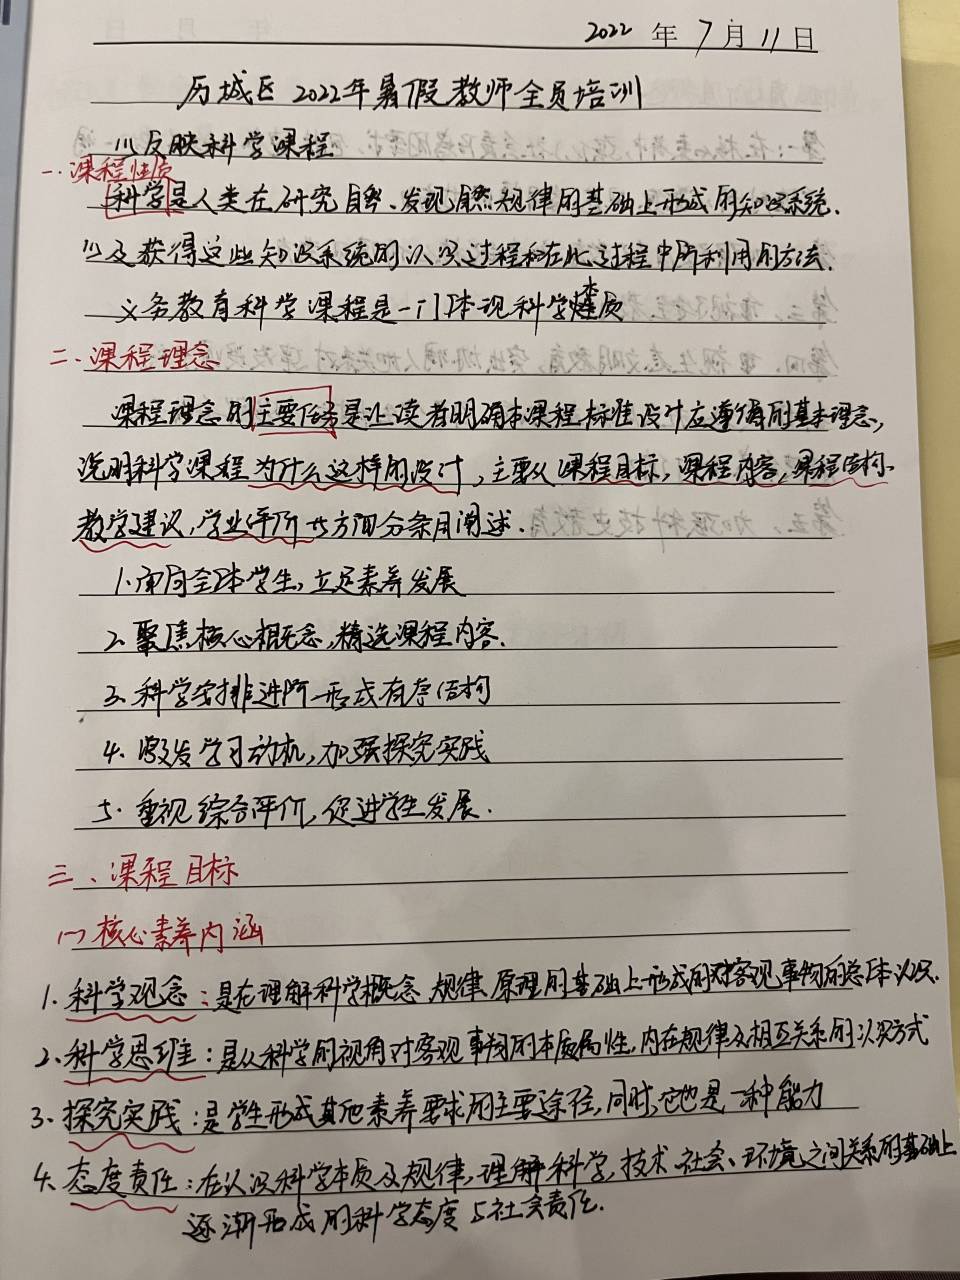 2022 年 7 月 11 日
历城区 2022年暑假教师全员培训
(1) 反映科学课程
一.课程性质
科学是人类在研究自然、发现自然规律的基础上形成的知识系统.
以及获得这些知识系统的认识过程和在此过程中所利用的方法.
义务教育科学课程是一门体现科学本质
二.课程理念
课程理念的主要任务是让读者明确本课程标准设计应遵循的基本理念,
说明科学课程为什么这样的设计,主要从课程目标,课程内容,课程结构.
教学建议,学业评价 5方面分条目阐述.
1.面向全体学生,立足素养发展
2.聚焦核心概念,精选课程内容.
3.科学安排进阶 形成有序结构
4.激发学习动机,加强探究实践
5.重视综合评价,促进学生发展.
三、课程目标
(一)核心素养内涵
1.科学观念:是在理解科学概念 规律 原理的基础上形成的对客观事物的总体认识.
2.科学思维:是从科学的视角对客观事物的本质属性,内在规律及相互关系的认识方式
3.探究实践:是学生形成其他素养要求的主要途径,同时,它也是一种能力
4.态度责任:在认识科学本质及规律,理解科学,技术 社会、环境之间关系的基础上
逐渐形成的科学态度与社会责任.